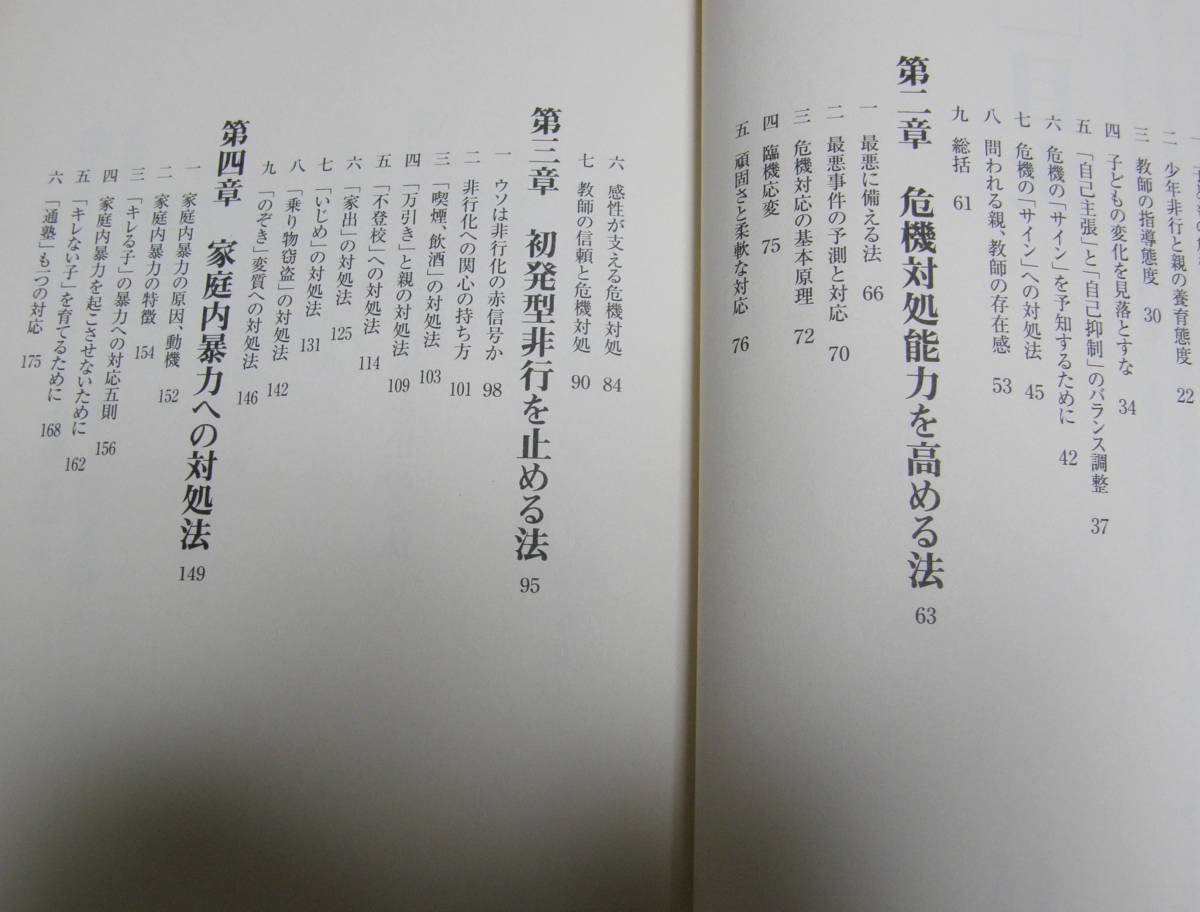 二 少年非行と親の養育態度 22
三 教師の指導態度 30
四 子どもの変化を見落とすな 34
五 「自己主張」と「自己抑制」のバランス調整 37
六 危機の「サイン」を予知するために 42
七 危機の「サイン」への対処法 45
八 問われる親、教師の存在感 53
九 総括 61
第二章 危機対処能力を高める法 63
一 最悪に備える法 66
二 最悪事件の予測と対応 70
三 危機対応の基本原理 72
四 臨機応変 75
五 頑固さと柔軟な対応 76
六 感性が支える危機対処 84
七 教師の信頼と危機対処 90
第三章 初発型非行を止める法 95
一 ウソは非行化の赤信号か 98
二 非行化への関心の持ち方 101
三 「喫煙、飲酒」の対処法 103
四 「万引き」と親の対処法 109
五 「不登校」への対処法 114
六 「家出」の対処法 125
七 「いじめ」の対処法 131
八 「乗り物窃盗」の対処法 142
九 「のぞき」変質への対処法 146
第四章 家庭内暴力への対処法 149
一 家庭内暴力の原因、動機 152
二 家庭内暴力の特徴 154
三 「キレる子」の暴力への対応五則 156
四 家庭内暴力を起こさせないために 162
五 「キレない子」を育てるために 168
六 「通塾」も一つの対応 175